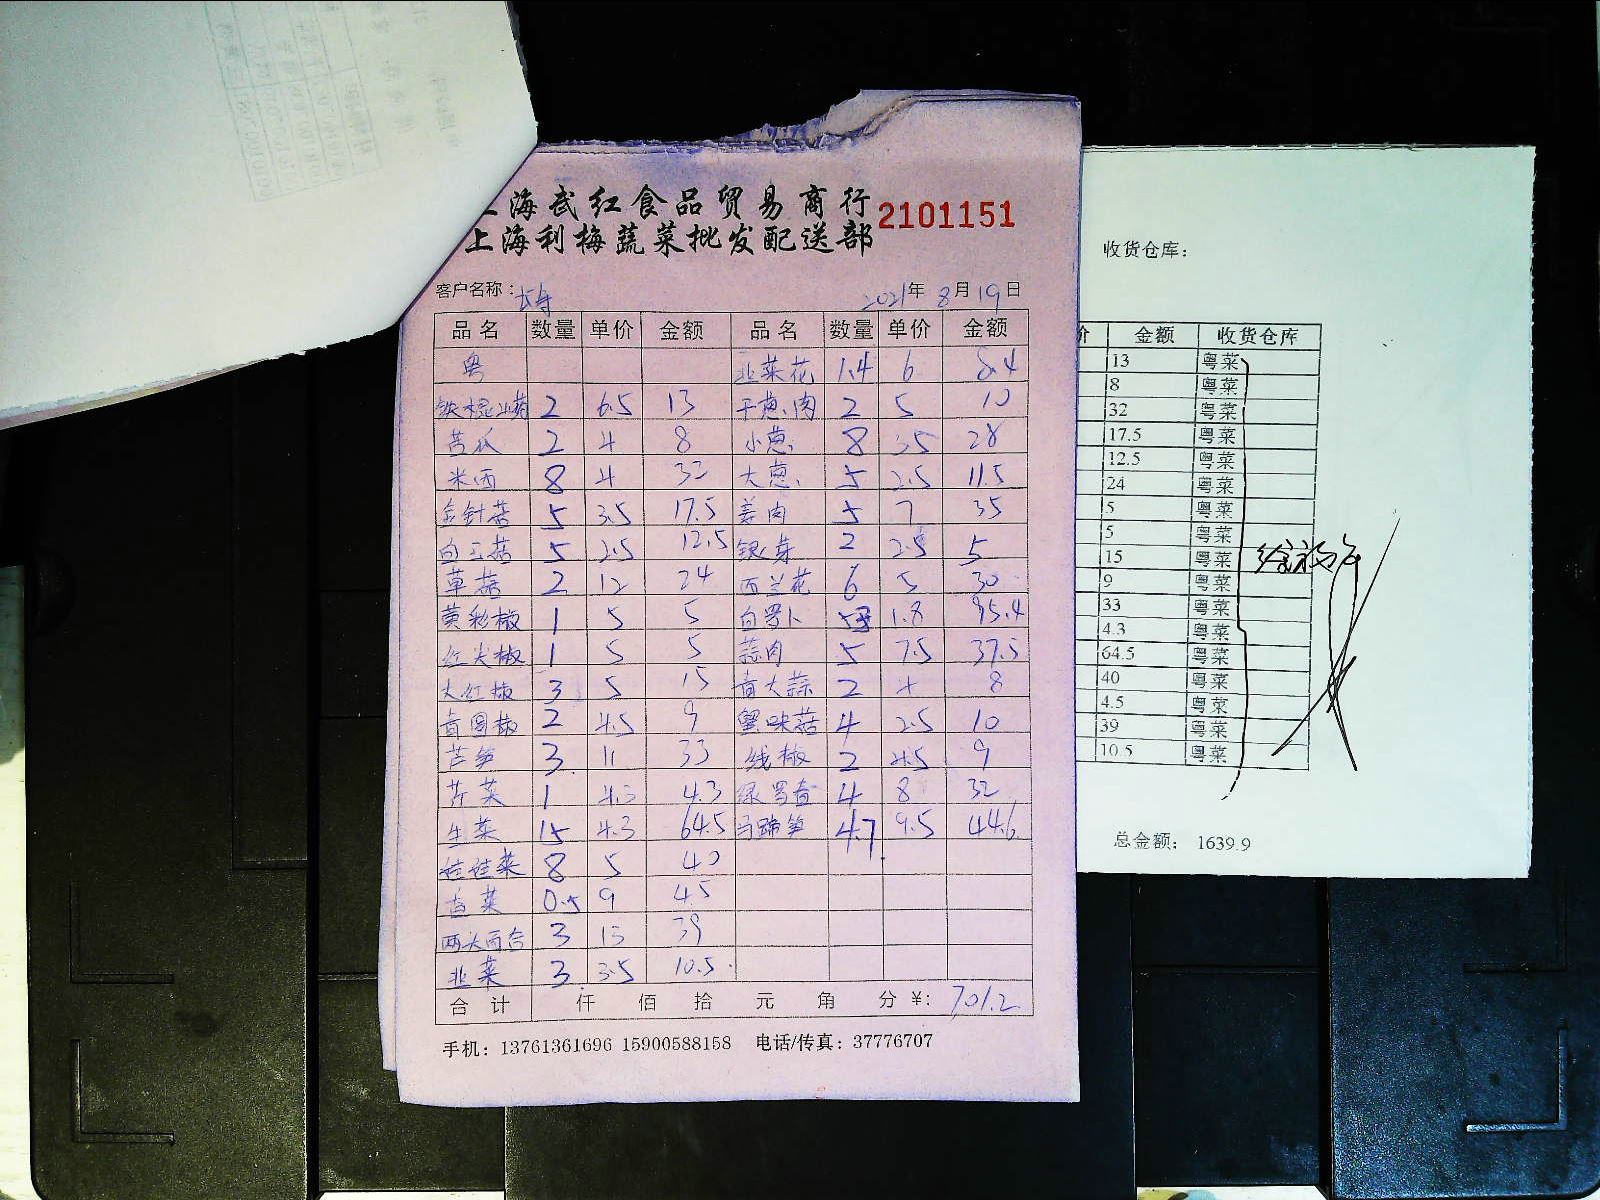 上海武红食品贸易商行
上海利梅蔬菜批发配送部
2101151
客户名称：
2021年 8月 19日
品名 数量 单价 金额 品名 数量 单价 金额
粤 韭菜花 1.4 6 8.4
铁棍山药 2 6.5 13 干葱肉 2 5 10
苦瓜 2 4 8 小葱 8 3.5 28
米西 8 4 32 大葱 5 2.5 11.5
金针菇 5 3.5 17.5 姜肉 5 7 35
白玉菇 5 2.5 12.5 银芽 2 2.5 5
草菇 2 12 24 西兰花 6 5 30
黄彩椒 1 5 5 白罗卜 53 1.8 95.4
红尖椒 1 5 5 蒜肉 5 7.5 37.5
大红椒 3 5 15 青大蒜 2 4 8
青圆椒 2 4.5 9 蟹味菇 4 2.5 10
芦笋 3 11 33 线椒 2 4.5 9
芹菜 1 4.3 4.3 绿罗 4 8 32
生菜 15 4.3 64.5 马蹄笋 4.7 9.5 44.6
娃娃菜 8 5 40
香菜 0.5 9 4.5
两头百合 3 13 39
韭菜 3 3.5 10.5
合计 仟 佰 拾 元 角 分 ¥: 701.2
手机：13761361696 15900588158 电话/传真：37776707
收货仓库：
价 金额 收货仓库
13 粤菜
8 粤菜
32 粤菜
17.5 粤菜
12.5 粤菜
24 粤菜
5 粤菜
5 粤菜
15 粤菜
9 粤菜
33 粤菜
4.3 粤菜
64.5 粤菜
40 粤菜
4.5 粤菜
39 粤菜
10.5 粤菜
总金额： 1639.9